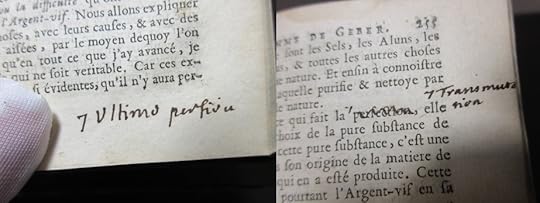 ou la difficulté qu'on
l'Argent-vif. Nous allons expliquer
oses, avec leurs causes, & avec des
aisées, par le moyen dequoy l'on
qu'en tout ce que j'ay avancé, je
qui ne soit veritable. Car ces ex-
si évidentes, qu'il n'y aura per-
7 Ultimo
ME DE GEBER. 255
sont les Sels, les Aluns, les
s, & toutes les autres choses
e nature. Et enfin à connoistre
aquelle purifie & nettoye par
e nature.
7 Transmuta
ce qui fait la perfection, elle
tion
hoix de la pure substance de
cette pure substance, c'est une
son origine de la matiere de
qui en a esté produite. Cette
pourtant l'Argent-vif en sa